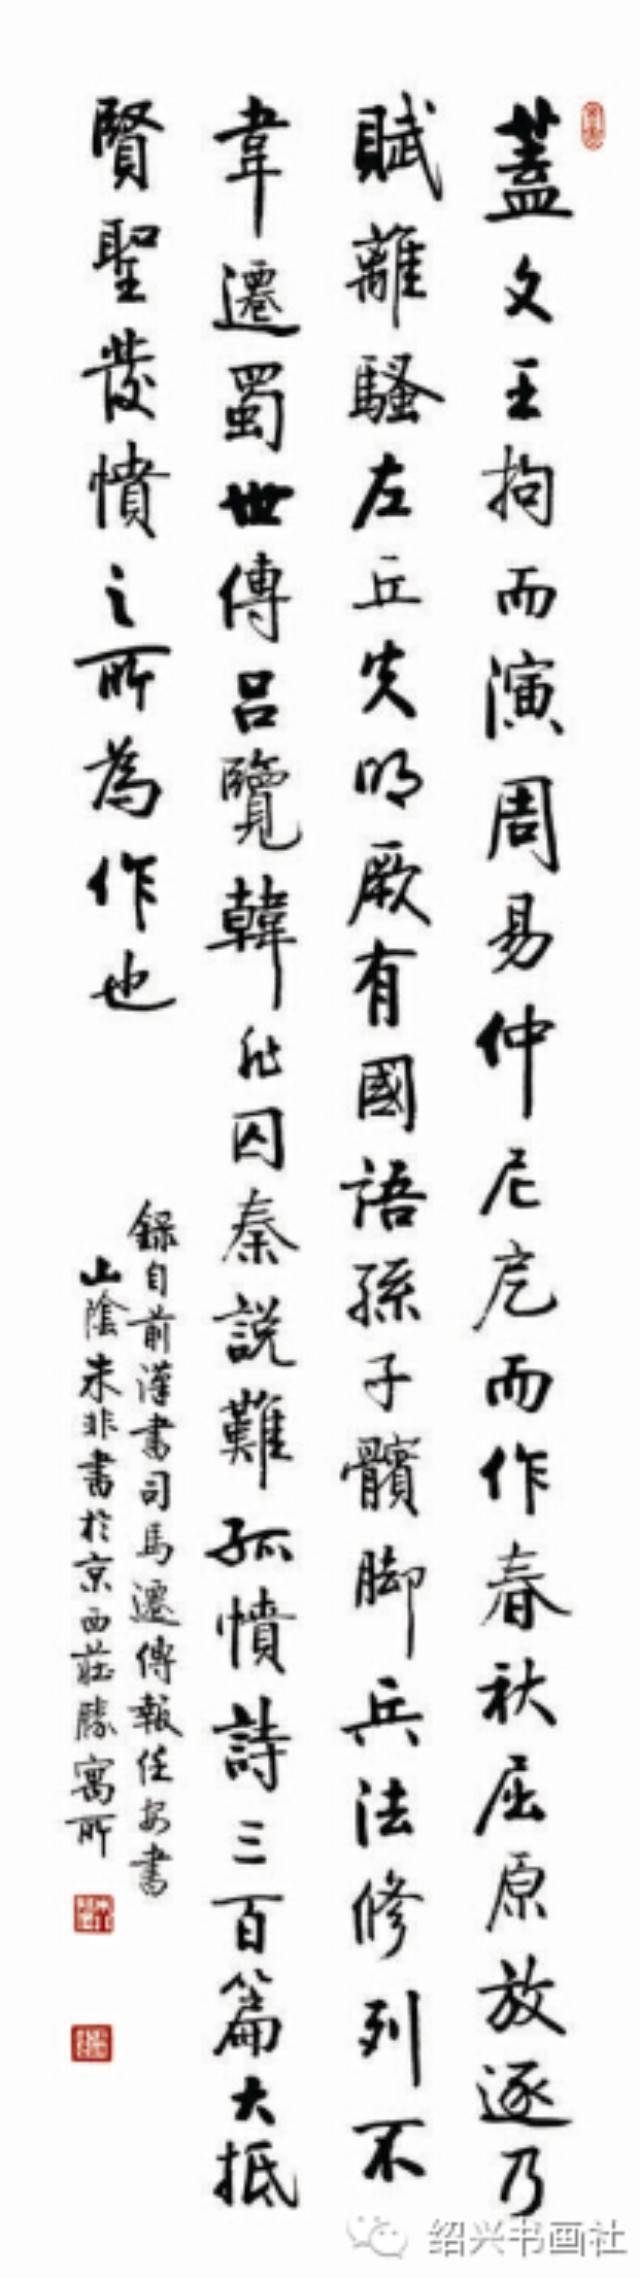 蓋文王拘而演周易仲尼戹而作春秋屈原放逐乃
賦離騷左丘失明厥有國語孫子髕脚兵法修列不
韋遷蜀世傳呂覽韓非囚秦說難孤憤詩三百篇大抵
賢聖發憤之所為作也
錄自前漢書司馬遷傳報任安書
山陰朱非書於京西莊勝寓所
绍兴书画社